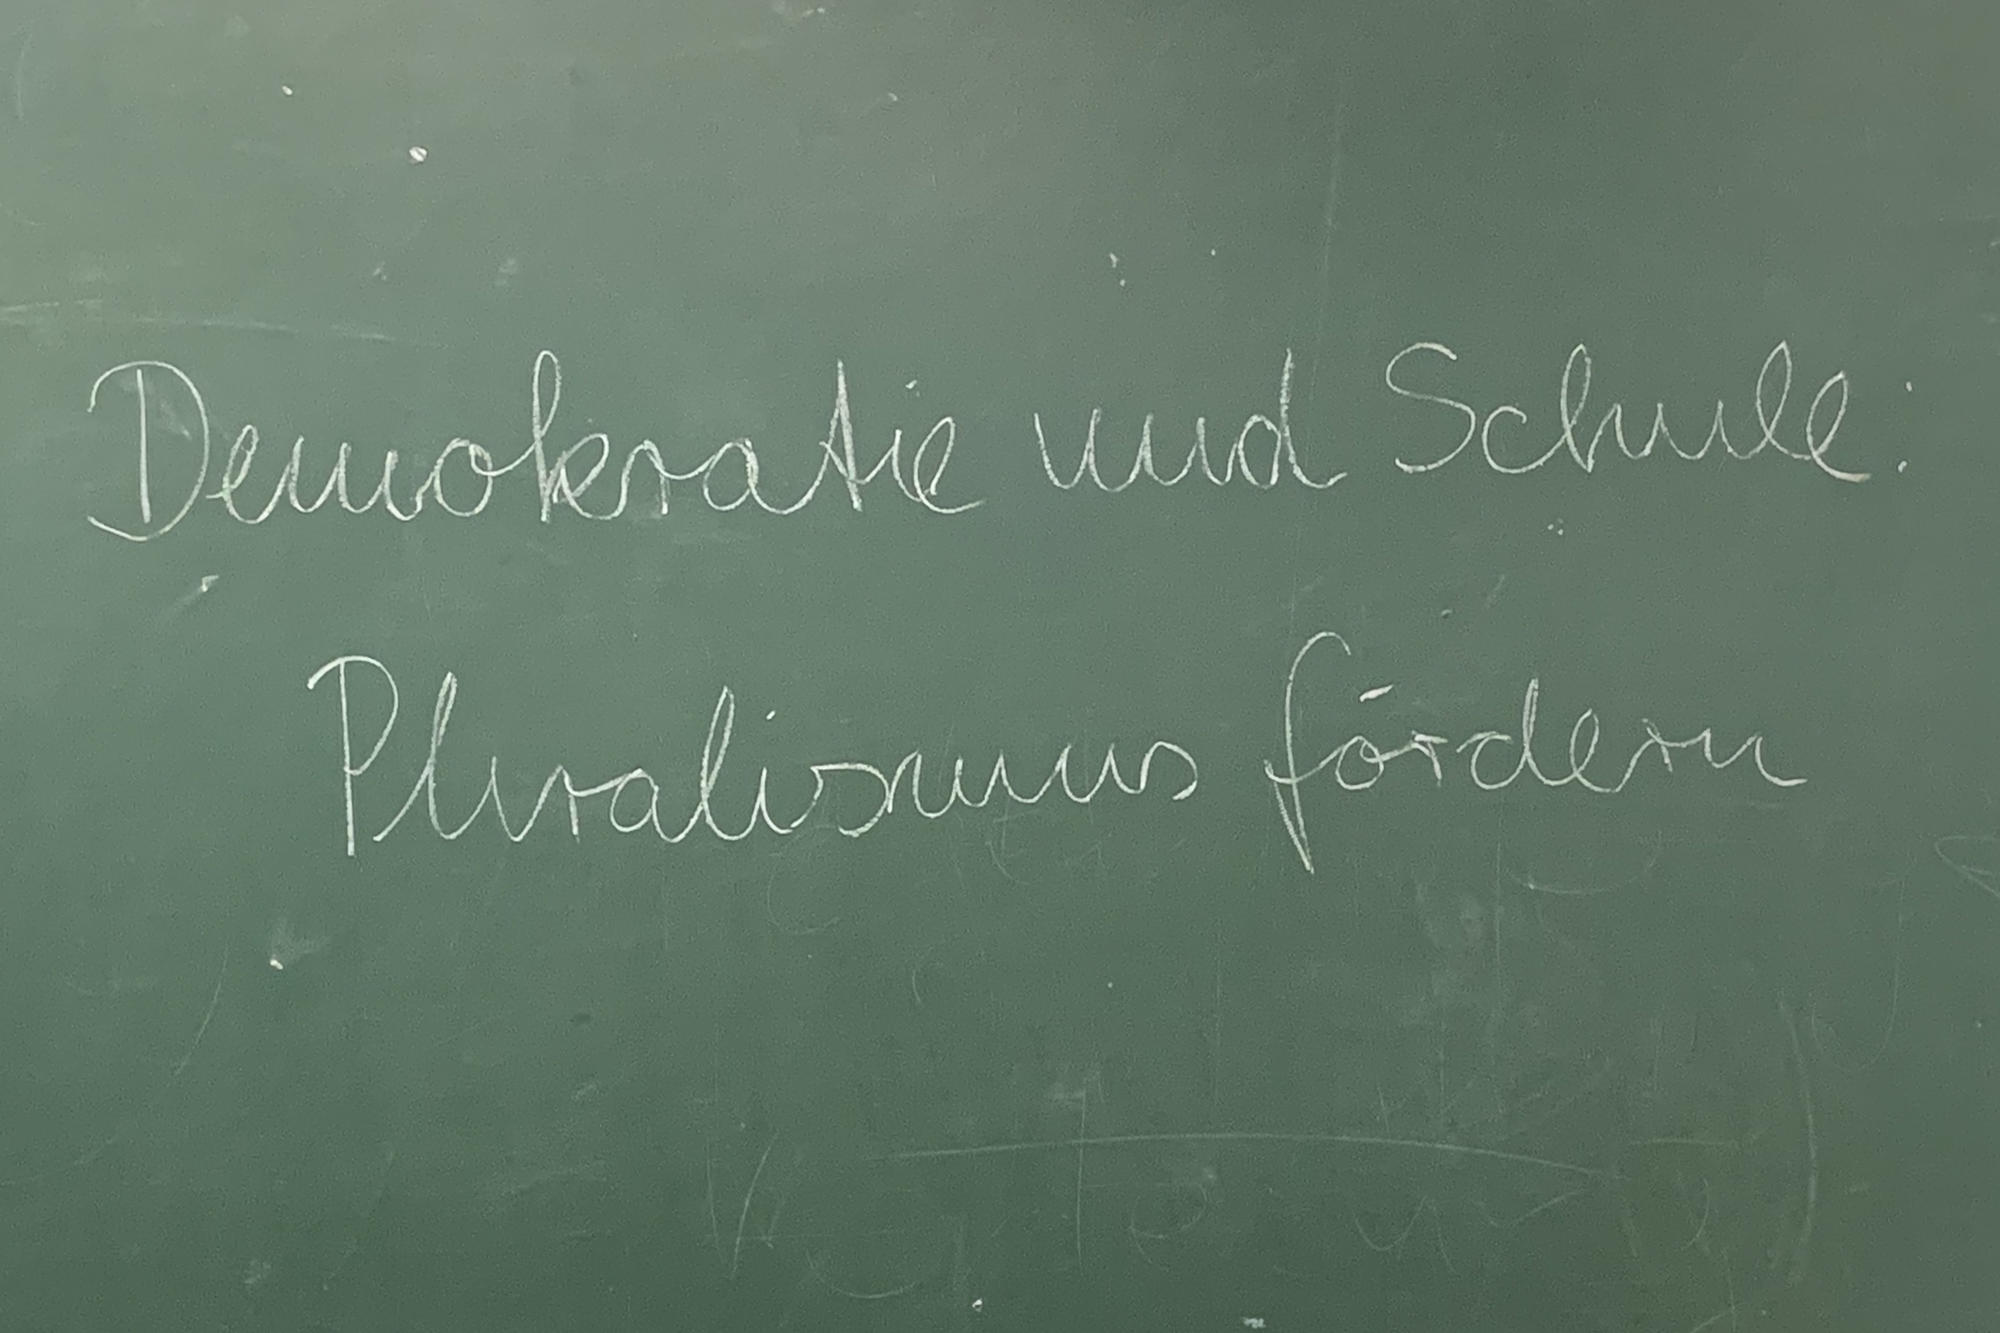 Demokratie und Schule:
Pluralismus fördern